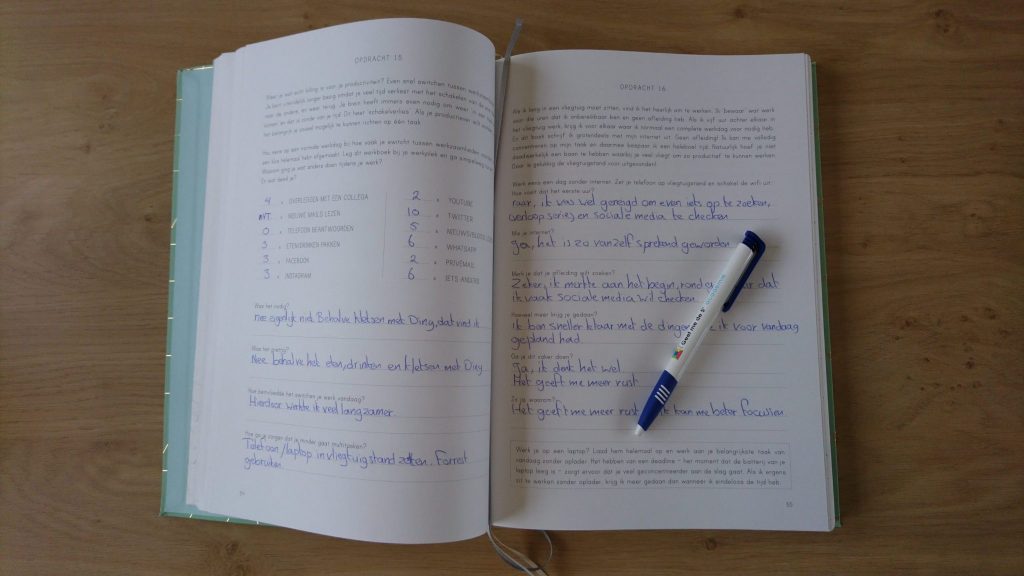 OPDRACHT 15.
Weet je wat echt killing is voor je productiviteit? Even snel switchen tussen
Je bent uiteindelijk langer bezig omdat je veel tijd verliest met het schakelen van de
naar de andere, en weer terug. Je brein heeft immers even nodig om weer in een
komen en dat is zonde van je tijd. Dit heet 'schakelverlies'. Als je productiever wilt
het belangrijk je zoveel mogelijk te kunnen richten op één taak.
Hou eens op een normale werkdag bij hoe vaak je switcht tussen werkzaamheden
een klus helemaal hebt afgemaakt. Leg dit werkboek bij je werkplek en ga
Waarom ging je wat anders doen tijdens je werk?
En wat deed je?
4 x OVERLEGGEN MET EEN COLLEGA
NVT x NIEUWE MAILS LEZEN
0 x TELEFOON BEANTWOORDEN
3 x ETEN/DRINKEN PAKKEN
3 x FACEBOOK
3 x INSTAGRAM
2 x YOUTUBE
10 x TWITTER
5 x NIEUWS/BLOGS
6 x WHATSAPP
2 x PRIVÉMAIL
6 x IETS ANDERS
Was het nodig?
nee eigenlijk niet. Behalve kletsen met Diny, dat vind ik
Was het
Nee, behalve het eten, drinken en kletsen met Diny
Hoe beïnvloedde het switchen je werk vandaag?
Hierdoor werkte ik veel langzamer.
Hoe ga je zorgen dat je minder gaat multitasken?
Telefoon/laptop in vliegtuigstand zetten. Forrest
gebruiken.
54
OPDRACHT 16.
Als ik lang in een vliegtuig moet zitten, vind ik het heerlijk om te werken. Ik 'bewaar' war werk
voor die uren dat ik onbereikbaar ben en geen afleiding heb. Als ik vijf uur achter elkaar in
het vliegtuig werk, krijg ik voor elkaar waar ik normaal een complete werkdag voor nodig heb.
En dit boek schrijf ik grotendeels met mijn internet uit. Geen afleiding! Ik kan me volledig
concentreren op mijn taak en daarmee bespaar ik een heleboel tijd. Natuurlijk hoef je niet
daadwerkelijk een baan te hebben waarbij je veel vliegt om zo productief te kunnen werken.
Daar is gelukkig de vliegtuigstand voor uitgevonden!
Werk eens een dag zonder internet. Zet je telefoon op vliegtuigstand en schakel de wifi uit.
Hoe voelt dat het eerste uur?
raar, ik was wel geneigd om even iets op te zoeken,
overloop series en sociale media te checken
Mis je internet?
Ja, het is zo vanzelfsprekend geworden
Merk je dat je afleiding wilt zoeken?
Zeker, ik merkte aan het begin, rond dat
ik vaak sociale media wil checken.
Hoeveel meer krijg je gedaan?
Ik ben sneller klaar met de dingen ik voor vandaag
gepland had.
Ga je dit vaker doen?
Ja, ik denk het wel.
Het geeft me meer rust
Zo ja, waarom?
Het geeft me meer rust ik kan me beter focussen.
Werk je op een laptop? Laad hem helemaal op en werk aan je belangrijkste taak van
vandaag zonder oplader. Het hebben van een deadline – het moment dat de batterij van je
laptop leeg is – zorgt ervoor dat je veel geconcentreerder aan de slag gaat. Als ik ergens
zit te werken zonder oplader, krijg ik meer gedaan dan wanneer ik eindeloos de tijd heb.
55
Geef me de 5